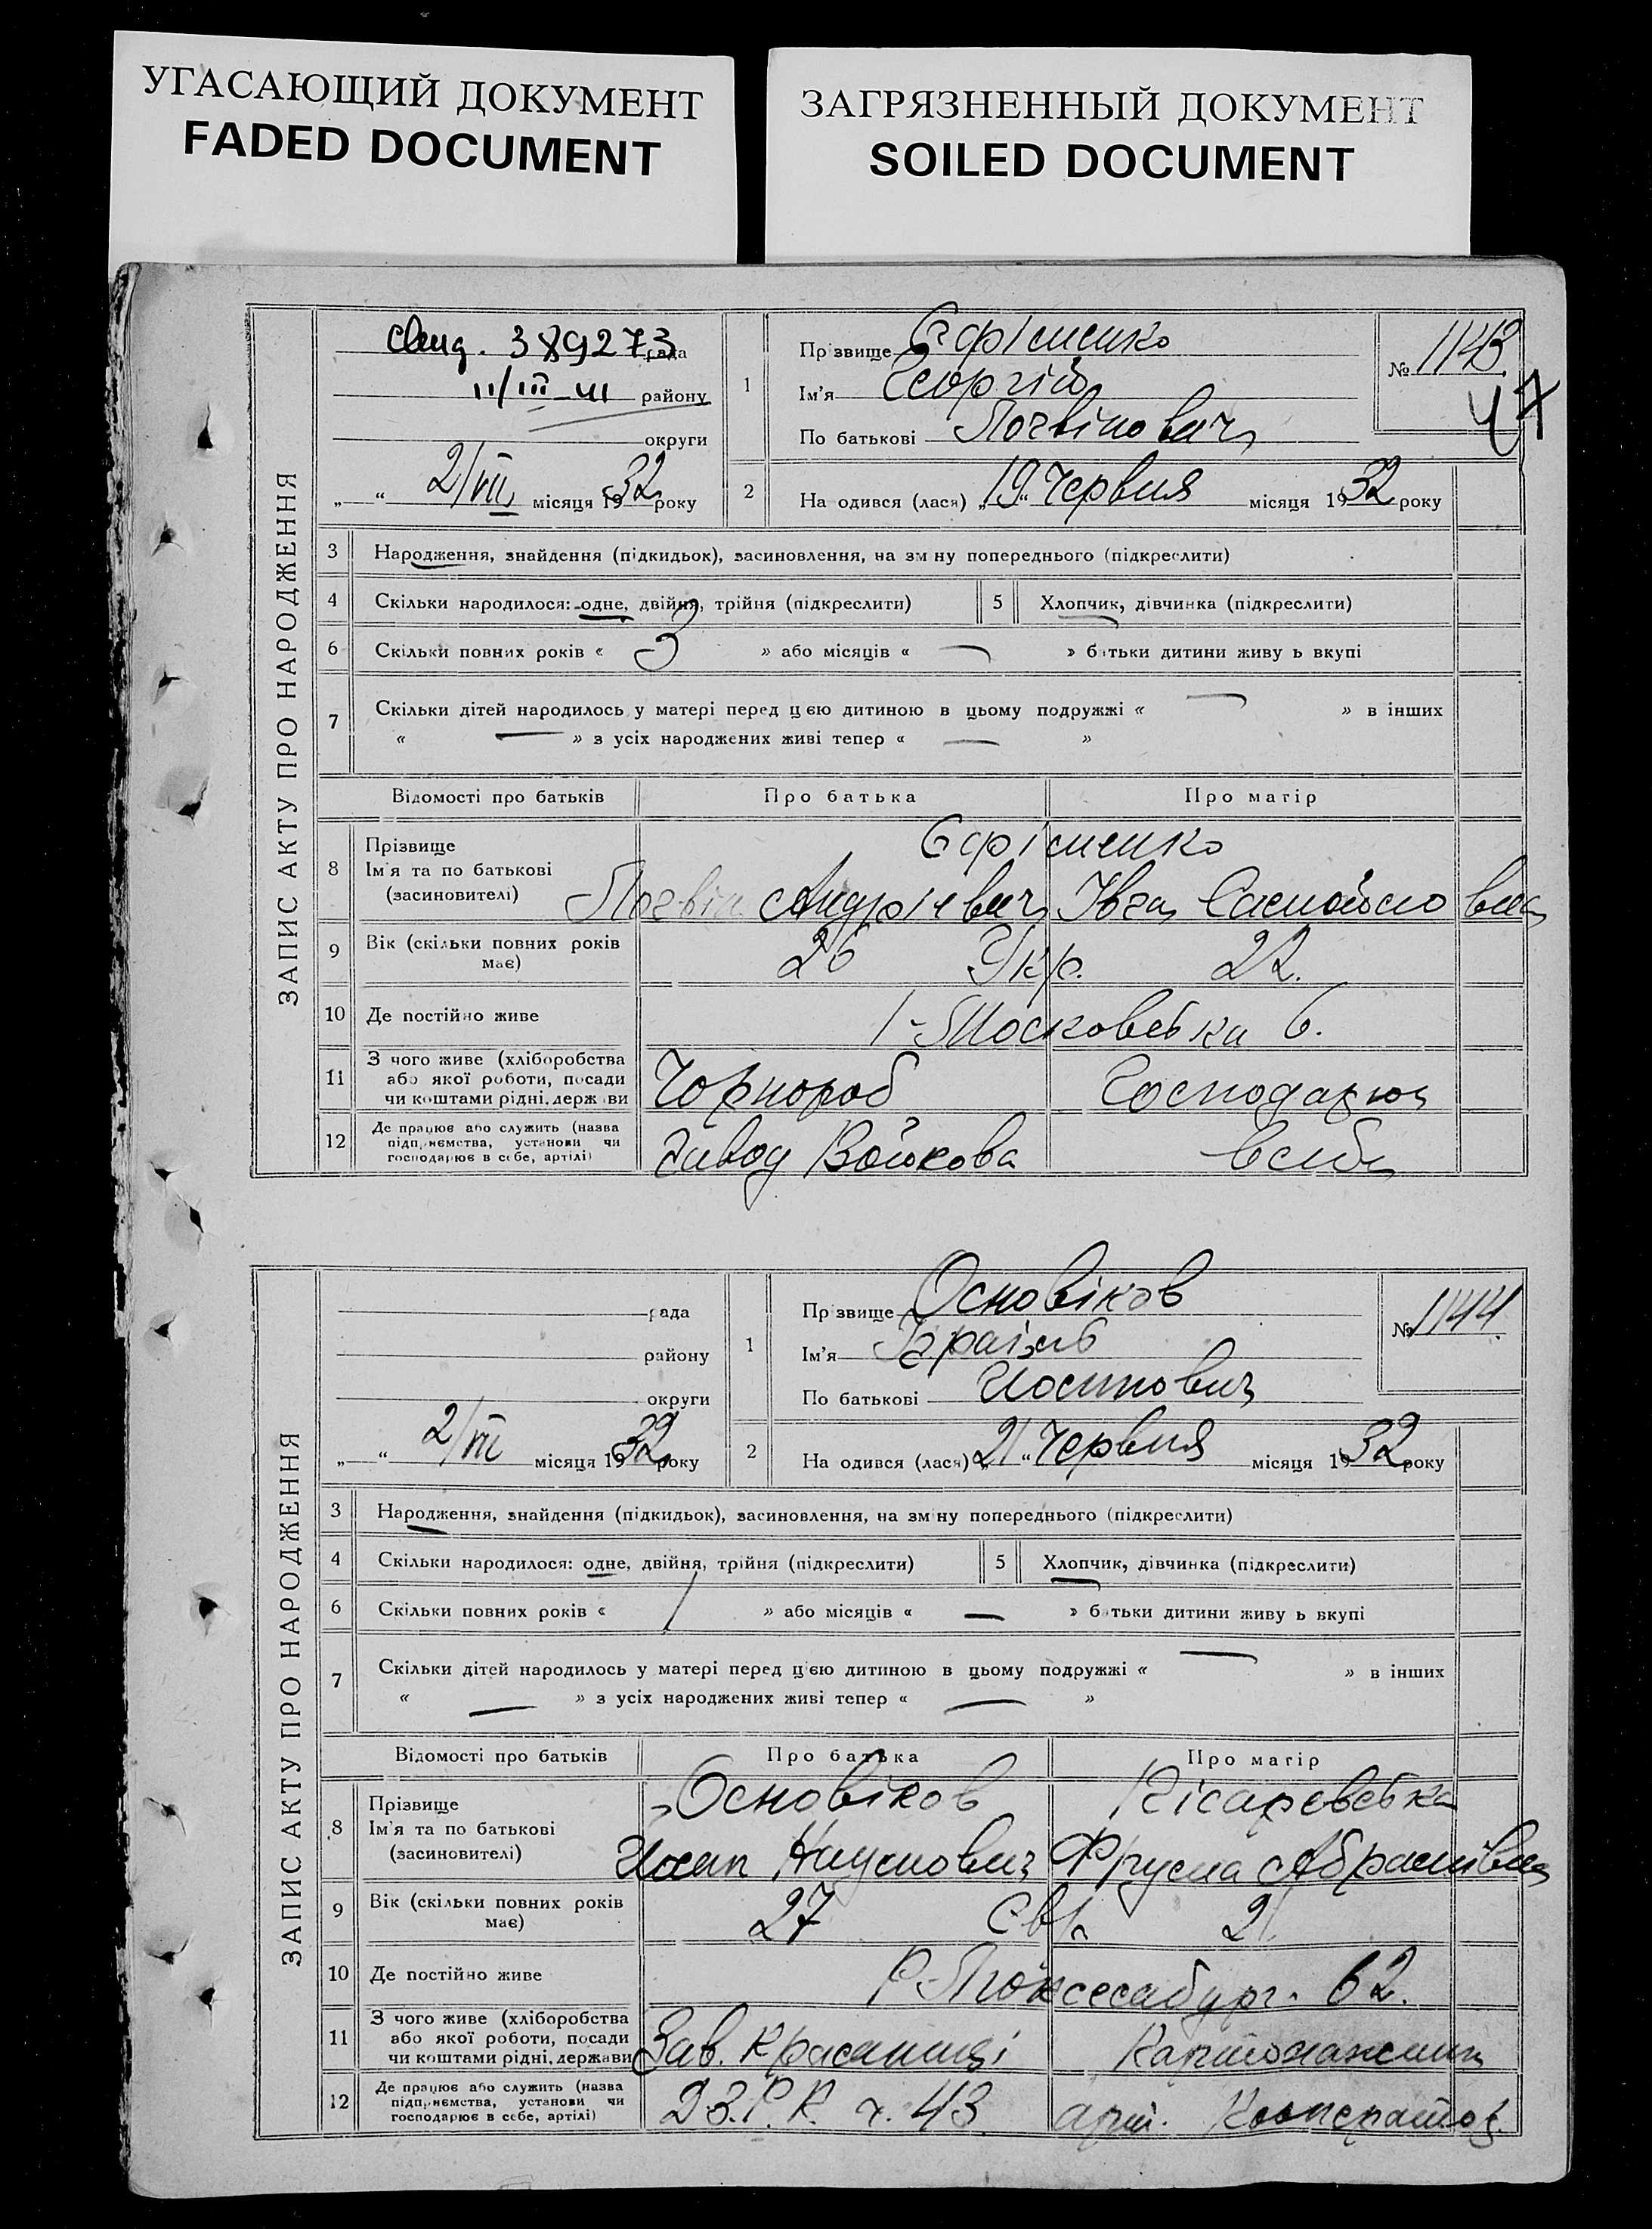 УГАСАЮЩИЙ ДОКУМЕНТ
FADED DOCUMENT
ЗАГРЯЗНЕННЫЙ ДОКУМЕНТ
SOILED DOCUMENT
ЗАПИС АКТУ ПРО НАРОДЖЕННЯ
389273 рада
11/III-41 району
округи
„ “ 2/VII місяця 1932 року
1
Пр звище Єфіменко
Ім'я Георгій
По батькові Логвінович
№ 1143
47
2 На одився (лася) „19“ Червня місяця 1932 року
3 Народження, знайдення (підкидьок), засиновлення, на зм ну попереднього (підкреслити)
4 Скільки народилося: одне, двійня, трійня (підкреслити) 5 Хлопчик, дівчинка (підкреслити)
6 Скільки повних років « 3 » або місяців « — » б тьки дитини живу ь вкупі
7 Скільки дітей народилось у матері перед цією дитиною в цьому подружжі « — » в інших
« — » з усіх народжених живі тепер « — »
Відомості про батьків Про батька Про матір
8 Прізвище
Ім'я та по батькові
(засиновителі)
Єфіменко
Логвін Андрієвич
9 Вік (скільки повних років має) 26 Укр. 22.
10 Де постійно живе 1-Московська 6.
11 З чого живе (хліборобства
або якої роботи, посади
чи коштами рідні, держ ви
Чорнороб Господарює
12 Де працює або служить (назва
підпр ємства, установи чи
господарює в себе, артілі)
Завод Войкова в себе
ЗАПИС АКТУ ПРО НАРОДЖЕННЯ
рада
району
округи
„ “ 2/VII місяця 1932 року
1
Пр звище Основіков
Ім'я Ізраїль
По батькові Иосипович
№ 1144
2 На одився (лася) „21“ Червня місяця 1932 року
3 Народження, знайдення (підкидьок), засиновлення, на зм ну попереднього (підкреслити)
4 Скільки народилося: одне, двійня, трійня (підкреслити) 5 Хлопчик, дівчинка (підкреслити)
6 Скільки повних років « 1 » або місяців « — » б тьки дитини живу ь вкупі
7 Скільки дітей народилось у матері перед цією дитиною в цьому подружжі « — » в інших
« — » з усіх народжених живі тепер « — »
Відомості про батьків Про батька Про матір
8 Прізвище
Ім'я та по батькові
(засиновителі)
Основіков Кісаревська
Иосип Наумович Фрума Абрамівна
9 Вік (скільки повних років має) 27 Євр. 21.
10 Де постійно живе 62.
11 З чого живе (хліборобства
або якої роботи, посади
чи коштами рідні, держави
Зав. Крамниці Картонажниця
12 Де працює або служить (назва
підпр ємства, установи чи
господарює в себе, артілі)
Д З.Р.К. ч. 43 арт. Кооператор.